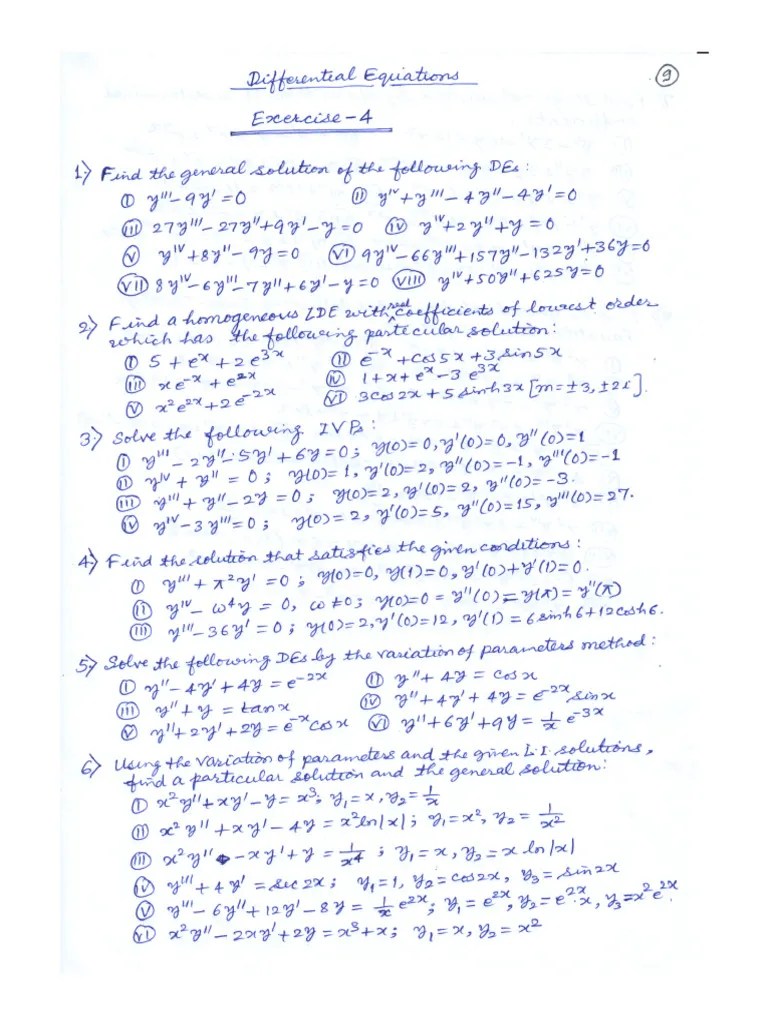 Differential Equations
⑨
Exercise-4
1.) Find the general solution of the following DEs:
Ⓘ y''' - 9y' = 0 Ⓘⓘ y^IV + y''' - 4y'' - 4y' = 0
(III) 27y''' - 27y'' + 9y' - y = 0 (IV) y^IV + 2y'' + y = 0
(V) y^IV + 8y'' - 9y = 0 (VI) 9y^IV - 66y''' + 157y'' - 132y' + 36y = 0
(VII) 8y^IV - 6y''' - 7y'' + 6y' - y = 0 (VIII) y^IV + 50y'' + 625y = 0
2) Find a homogeneous LDE with real coefficients of lowest order
which has the following particular solution:
(I) 5 + e^x + 2e^3x (II) e^-x + cos5x + 3sin5x
(III) xe^-x + e^2x (IV) 1 + x + e^x - 3e^3x
(V) x^2e^2x + 2e^-2x (VI) 3cos2x + 5sinh3x [m = ±3, ±2i].
3.) Solve the following IVPs:
(I) y''' - 2y'' - 5y' + 6y = 0; y(0)=0, y'(0)=0, y''(0)=1
(II) y^IV + y'' = 0; y(0)=1, y'(0)=2, y''(0)=-1, y'''(0)=-1
(III) y''' + y'' - 2y = 0; y(0)=2, y'(0)=2, y''(0)=-3.
(IV) y^IV - 3y''' = 0; y(0)=2, y'(0)=5, y''(0)=15, y'''(0)=27.
4) Find the solution that satisfies the given conditions:
(I) y''' + π^2y' = 0; y(0)=0, y(1)=0, y'(0)+y'(1)=0.
(II) y^IV - ω^4y = 0, ω≠0; y(0)=0=y''(0)=y(π)=y''(π)
(III) y''' - 36y' = 0; y(0)=2, y'(0)=12, y'(1)=6sinh6+12cosh6.
5) Solve the following DEs by the variation of parameters method:
(I) y'' - 4y' + 4y = e^-2x (II) y'' + 4y = cosx
(III) y'' + y = tanx (IV) y'' + 4y' + 4y = e^-2x sinx
(V) y'' + 2y' + 2y = e^-x cosx (VI) y'' + 6y' + 9y = 1/x e^-3x
6) Using the variation of parameters and the given L.I. solutions,
find a particular solution and the general solution:
(I) x^2y'' + xy' - y = x^3; y₁=x, y₂=1/x
(II) x^2y'' + xy' - 4y = x^2ln|x|; y₁=x^2, y₂=1/x^2
(III) x^2y'' - xy' + y = 1/x^4; y₁=x, y₂=x ln|x|
(IV) y''' + 4y' = sec2x; y₁=1, y₂=cos2x, y₃=sin2x
(V) y''' - 6y'' + 12y' - 8y = 1/x e^2x; y₁=e^2x, y₂=e^2x.x, y₃=x^2e^2x.
(VI) x^2y'' - 2xy' + 2y = x^3+x; y₁=x, y₂=x^2